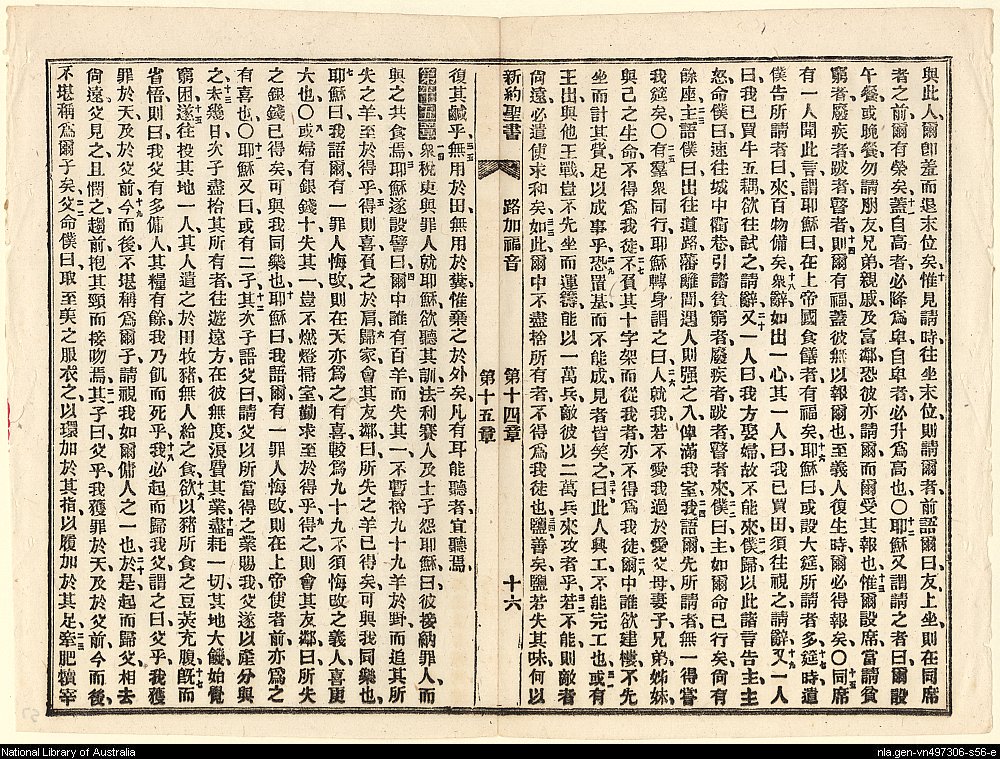 與此人爾即羞而退末位矣惟見請時往坐末位則請爾者前語爾曰友上坐則在同席
者之前爾有榮矣蓋自高者必降爲卑自卑者必升爲高也〇耶穌又謂請之者曰爾設
午餐或晚餐勿請朋友兄弟親戚及富鄰恐彼亦請爾而爾受其報也惟爾設席當請貧
窮者廢疾者跛者瞽者則爾有福蓋彼無以報爾也至義人復生時爾必得報矣〇同席
有一人聞此言謂耶穌曰在上帝國食餻者有福矣耶穌曰或設大筵所請者多筵時遣
僕告所請者曰來百物備矣衆辭如出一心其一人曰我已買田須往視之請辭又一人
曰我已買牛五耦欲往試之請辭又一人曰我方娶婦故不能來僕歸以此諸言告主主
怒命僕曰速往城中衢巷引諸貧窮者廢疾者跛者瞽者來僕曰主如爾命已行矣尚有
餘座主語僕曰出往道路藩籬間遇人則强之入俾滿我室我語爾先所請者無一得嘗
我筵矣〇有羣衆同行耶穌轉身謂之曰人就我若不愛我過於愛父母妻子兄弟姊妹
與己之生命不得爲我徒不負其十字架而從我者亦不得爲我徒爾中誰欲建樓不先
坐而計其費足以成事乎恐置基而不能成見者皆笑之曰此人興工不能完工也或有
王出與他王戰豈不先坐而運籌能以一萬兵敵彼以二萬兵來攻者乎若不能則敵者
尚遠必遣使求和矣如此爾中不盡捨所有者不得爲我徒也鹽善矣鹽若失其味何以
新約聖書 路加福音 第十四章 十六
第十五章
復其鹹乎無用於田無用於糞惟棄之於外矣凡有耳能聽者宜聽焉
第十五章衆稅吏與罪人就耶穌欲聽其訓法利賽人及士子怨耶穌曰彼接納罪人而
與之共食焉耶穌遂設譬曰爾中誰有百羊而失其一不暫捨九十九羊於野而追其所
失之羊至於得乎得則喜負之於肩歸家會其友鄰曰所失之羊已得矣可與我同樂也
耶穌曰我語爾有一罪人悔改則在天亦爲之有喜較爲九十九不須悔改之義人喜更
大也〇或婦有銀錢十失其一豈不燃燈掃室勤求至於得乎得之則會其友鄰曰所失
之銀錢已得矣可與我同樂也耶穌曰我語爾有一罪人悔改則在上帝使者前亦爲之
有喜也〇耶穌又曰或有二子其次子語父曰請父以所當得之業賜我父遂以產分與
之未幾日次子盡拾其所有者往遊遠方在彼無度浪費其業盡耗一切其地大饑始覺
窮困遂往投其地一人其人遣之於田牧豬無人給之食欲以豬所食之豆莢充腹既而
省悟則曰我父有多傭人其糧有餘我乃飢而死乎我必起而歸我父謂之曰父乎我獲
罪於天及於父前今而後不堪稱爲爾子請視我如爾傭人之一也於是起而歸父相去
尚遠父見之且憫之趨前抱其頸而接吻焉其子曰父乎我獲罪於天及於父前今而後
不堪稱爲爾子矣父命僕曰取至美之服衣之以環加於其指以履加於其足牽肥犢宰
National Library of Australia
nla.gen-vn497306-s56-e